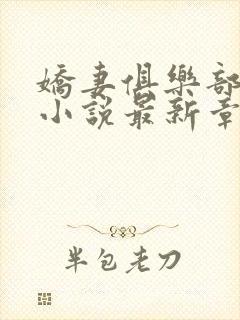 嬌妻俱樂部
小說最新章
半包老刀